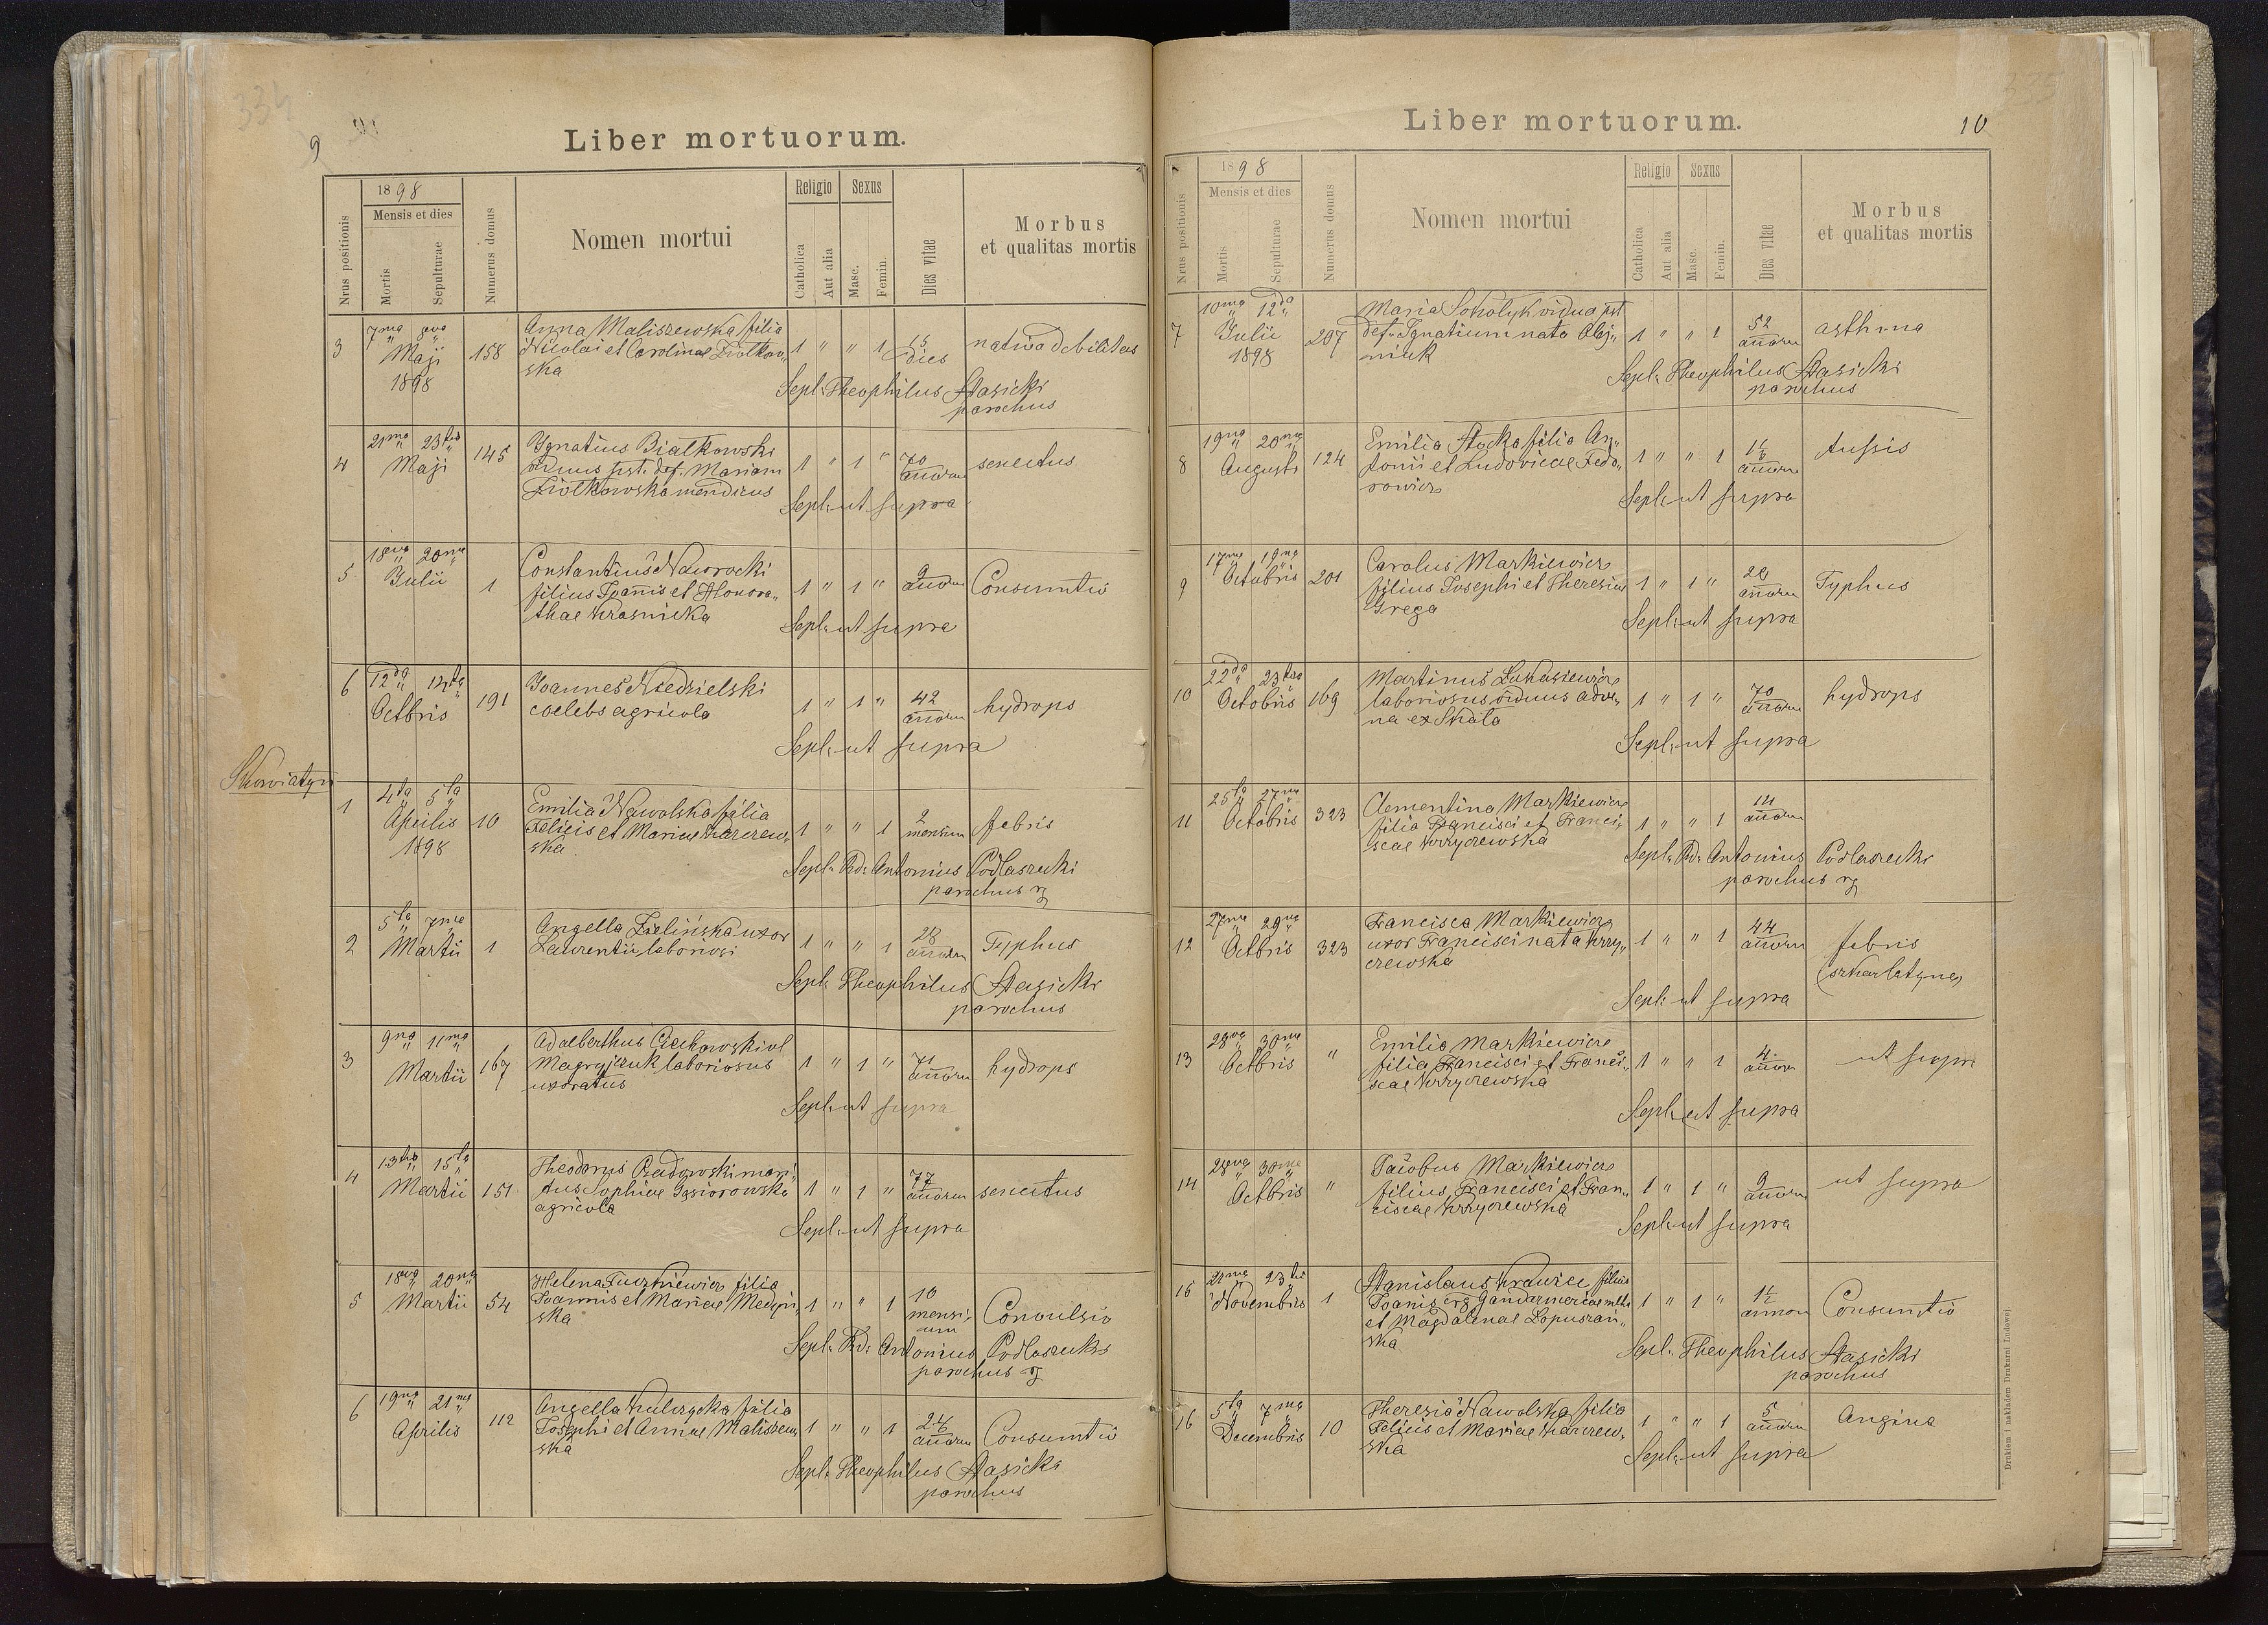 334
9
Liber mortuorum.
1898
Mensis et dies
Religio Sexus
Nrus positionis
Mortis
Sepulturae
Numerus domus
Nomen mortui
Catholica
Aut alia
Masc.
Femin.
Dies vitae
Morbus
et qualitas mortis
3 7ma 8va Maji 1898 158
Anna Maliszewska filia
Nicolai et Carolinae Ziołkow„
ska
1 " " 1 15 dies nativa debilitas
Sepl: Theophilus Stasicki
parochus
4 21ma 23tia Maji 145
Ygnatius Białkowski
viduus post def. Mariam
Ziołkowska mendicus
1 " 1 " 70 annorum senectus
Sepl: ut supra
5 18va 20ma Julii 1
Constantinus Nawrocki
filius Joannis et Honora„
thae Krasnicka
1 " 1 " 9 annorum Consumtio
Sepl: ut supra
6 12da 14ta Octbris 191
Joannes Niedzielski
coelebs agricola
1 " 1 " 42 annorum hydrops
Sepl: ut supra
Skowiatyn
1 4ta 5ta Aprilis 1898 10
Emilia Nawolska filia
Felicis et Mariae Karczew„
ska
1 " " 1 2 mensium febris
Sepl: Rd: Antonius Podlaszecki
parochus rg
2 5ta 7ma Martii 1
Angella Zielińska uxor
Laurentii laboriosi
1 " " 1 28 annorum Typhus
Sepl: Theophilus Stasicki
parochus
3 9na 11ma Martii 167
Adalberthus Ciechowski vl
Magryczuk laboriosus
uxoratus
1 " 1 " 71 annorum hydrops
Sepl: ut supra
4 13tia 15ta Martii 151
Theodorus Rzadowski mari„
tus Sophiae Gąsiorowska
agricola
1 " 1 " 77 annorum senectus
Sepl: ut supra
5 18va 20ma Martii 54
Helena Tuczkiewicz filia
Joannis et Mariae Medyń„
ska
1 " " 1 10 mensi„
um Convulsio
Sepl: Rd: Antonius Podlaszecki
parochus rg
6 19na 21ma Aprilis 112
Angella Kulczycka filia
Josephi et Annae Maliszew„
ska
1 " " 1 26 annorum Consumtio
Sepl: Theophilus Stasicki
parochus
10
Liber mortuorum.
1898
Mensis et dies
Religio Sexus
Nrus positionis
Mortis
Sepulturae
Numerus domus
Nomen mortui
Catholica
Aut alia
Masc.
Femin.
Dies vitae
Morbus
et qualitas mortis
7 10ma 12da Julii 1898 207
Maria Sokolyk vidua pst
def. Ygnatium nata Olij„
niuk
1 " " 1 52 annorum asthma
Sepl: Theophilus Stasicki
parochus
8 19na 20ma Augusti 124
Emilia Stocka filia An„
tonii et Ludovicae Fedo„
rowicz
1 " " 1 annorum tussis
Sepl: ut supra
9 17ma 19na Octobris 201
Carolus Markiewicz
filius Josephi et Theresiae
Grega
1 " 1 " 20 annorum Typhus
Sepl: ut supra
10 22da 23tia Octobris 169
Martinus Łukasiewicz
laboriosus viduus adve„
na ex Skała
1 " 1 " 70 annorum hydrops
Sepl: ut supra
11 25ta 27ma Octobris 323
Clementina Markiewicz
filia Francisci et Franci„
scae Krzyczewska
1 " " 1 14 annorum
Sepl: Rd: Antonius Podlaszecki
parochus rg
12 27ma 29na Octbris 323
Francisca Markiewicz
uxor Francisci nata Krzy„
czewska
1 " " 1 44 annorum febris
(szkarlatyna)
Sepl: ut supra
13 28va 30ma Octbris "
Emilia Markiewicz
filia Francisci et Franci„
scae Krzyczewska
1 " " 1 4 annor ut supra
Sepl: ut supra
14 28va 30ma Octbris "
Jacobus Markiewicz
filius Francisci et Fran„
ciscae Krzyczewska
1 " 1 " 9 annorum ut supra
Sepl: ut supra
15 21ma 23tia Novembris 1
Stanislaus Krawiec filius
Joanis Gandarmeriae
et Magdalenae Łopuszań„
ska
1 " 1 " 1½ annorum Consumtio
Sepl: Theophilus Stasicki
parochus
16 5ta 7ma Decembris 10
Theresia Nawolska filia
Felicis et Mariae Karczew„
ska
1 " " 1 5 annorum Angina
Sepl: ut supra
Drukiem i nakładem Drukarni Ludowej.